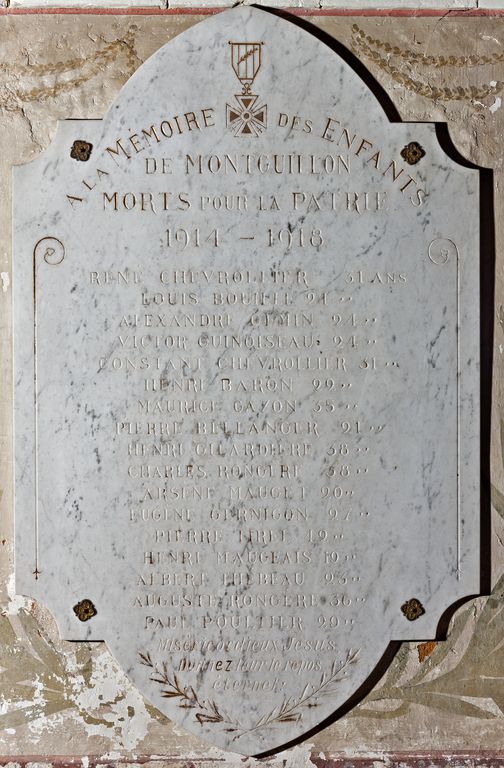 A LA MÉMOIRE DES ENFANTS
DE MONTGUILLON
MORTS POUR LA PATRIE
1914 - 1918
RENÉ CHEVROLLIER 31 ANS
LOUIS 24 "
ALEXANDRE 24 "
VICTOR GUINOISEAU 24 "
CONSTANT CHEVROLLIER 31 "
HENRI BARON 22 "
MAURICE GAYON 35 "
PIERRE BELLANGER 21 "
HENRI GILARDIÈRE 38 "
CHARLES RONCERÉ 38 "
ARSÈNE 20 "
EUGÈNE GERNIGON 27 "
PIERRE 19 "
HENRI MAUGEAIS 19 "
ALBERT 23 "
AUGUSTE RONCERÉ 36 "
PAUL POULTIER 20 "
Miséricordieux Jésus
Donnez leur le repos
éternel!